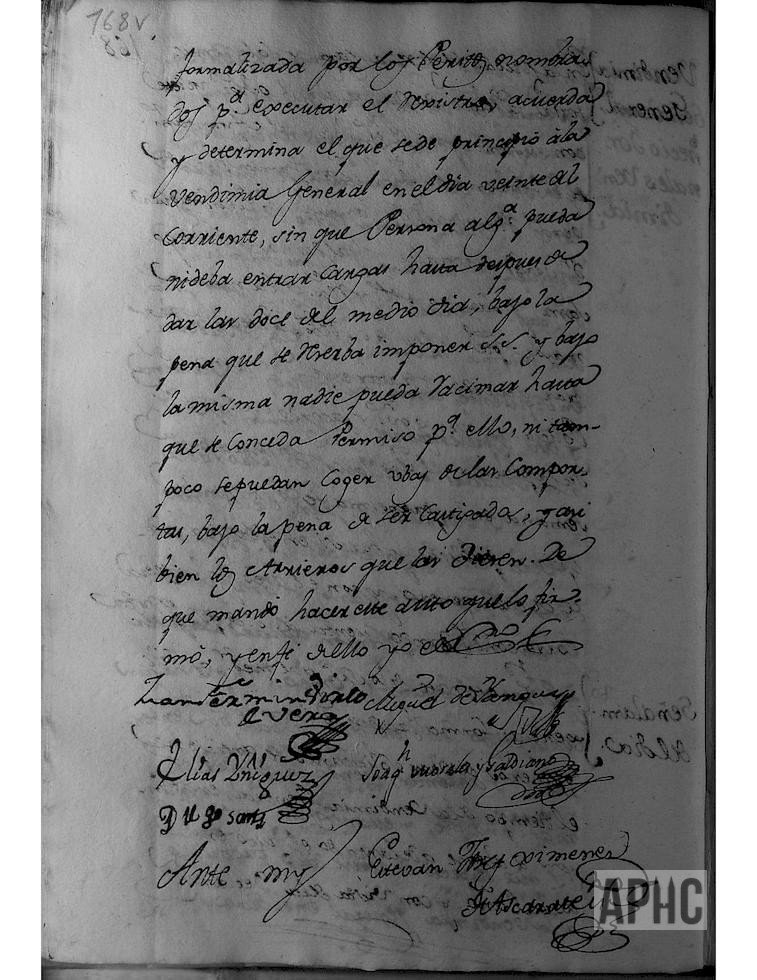 168v.
168
formalizada por los Peritos nombra-
dos p.ª executar el rexistro, acuerda
y determina el que se de principio á la
vendimia General en el dia veinte del
corriente, sin que Persona alg.ª pueda
ni deba entrar cargas hasta despues de
dar las doce del medio dia, bajo la
pena que se reserba imponer S.S. y bajo
la misma nadie pueda racimar hasta
que se conceda Permiso p.ª ello, ni tam-
poco se puedan coger vbas de las Compor-
tas, bajo la pena de ser castigados, y asi
bien los Arrieros que las dieren. De
que mandó hacer este auto que lo fir-
mó, y en fe de ello yo el Ess.no
Juan Fermin
Miguel de
de Vera
Elias Yñiguez
Joaq.n y Galdiano
Ante my
Estevan Fran.co Ximenez
de Ascarate
APHC